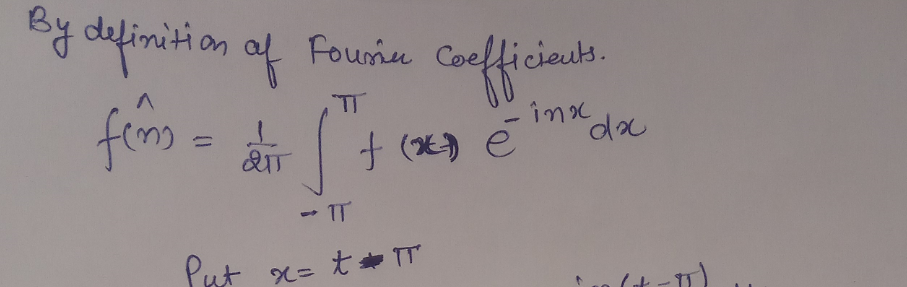 By definition of Fourier Coefficients.
f̂(n) = 1/2π ∫_{-π}^{π} f(x) e^{-inx} dx
Put x = t - π
(t-π)